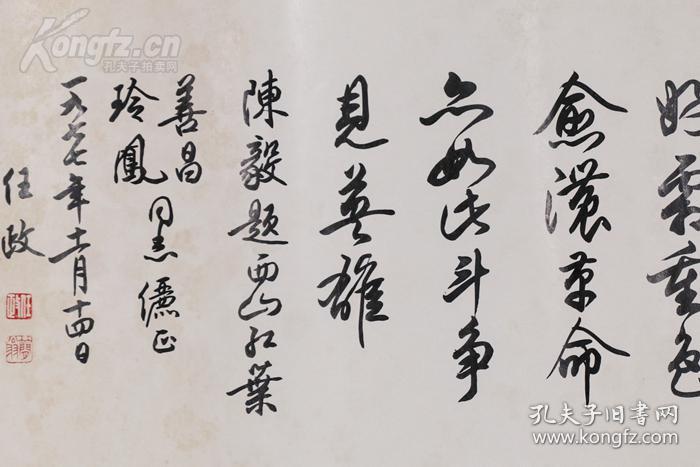 好霜重色
愈濃革命
亦如此斗争
見英雄
陳毅題西山红葉
善昌
玲鳳同志儷正
一九七七年十一月十四日
任政
任政
Kongfz.cn
孔夫子拍卖网
孔夫子旧书网
www.kongfz.com